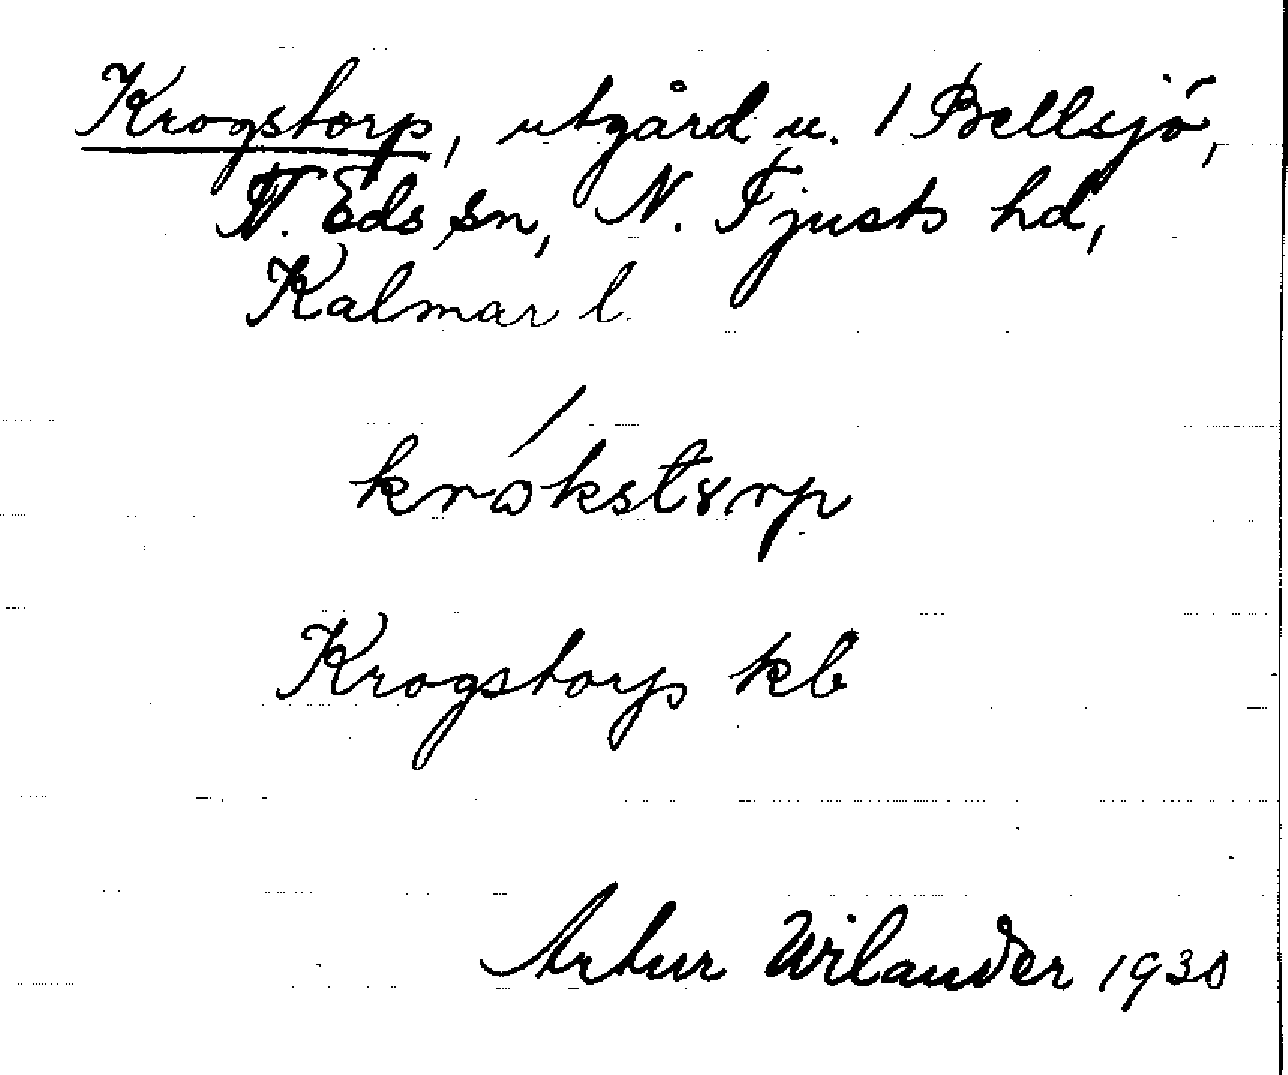 Krogstorp, utgård u. 1 Bellsjö,
V. Eds sn, N. Tjusts hd,
Kalmar l.
krókstorp
Krogstorp kb
Artur Wilander 1930